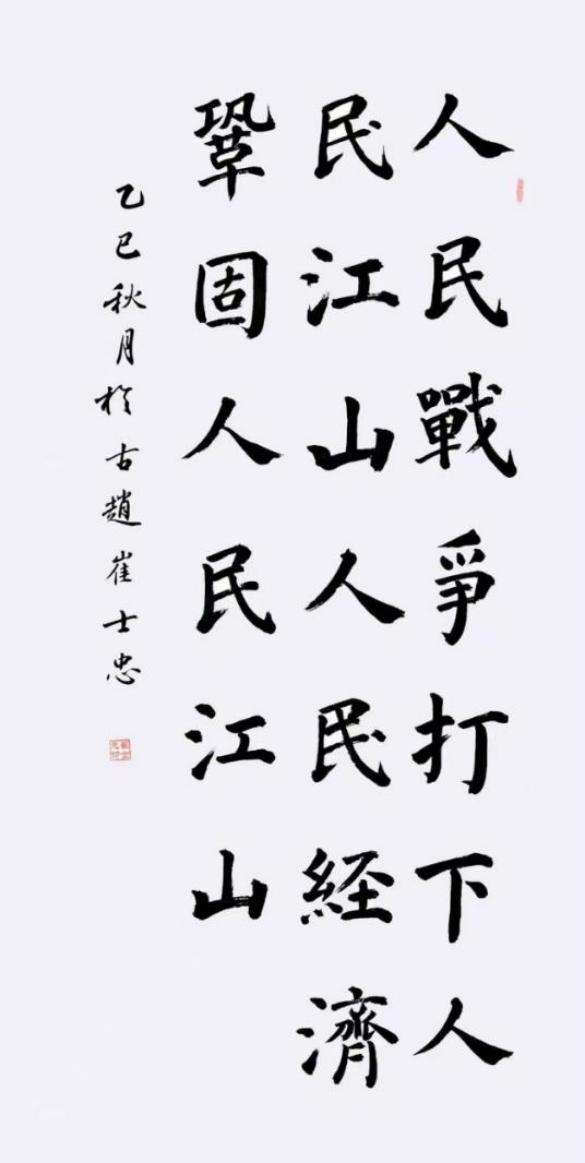 人民戰爭打下人
民江山人民経濟
鞏固人民江山
乙巳秋月於古趙崔士忠